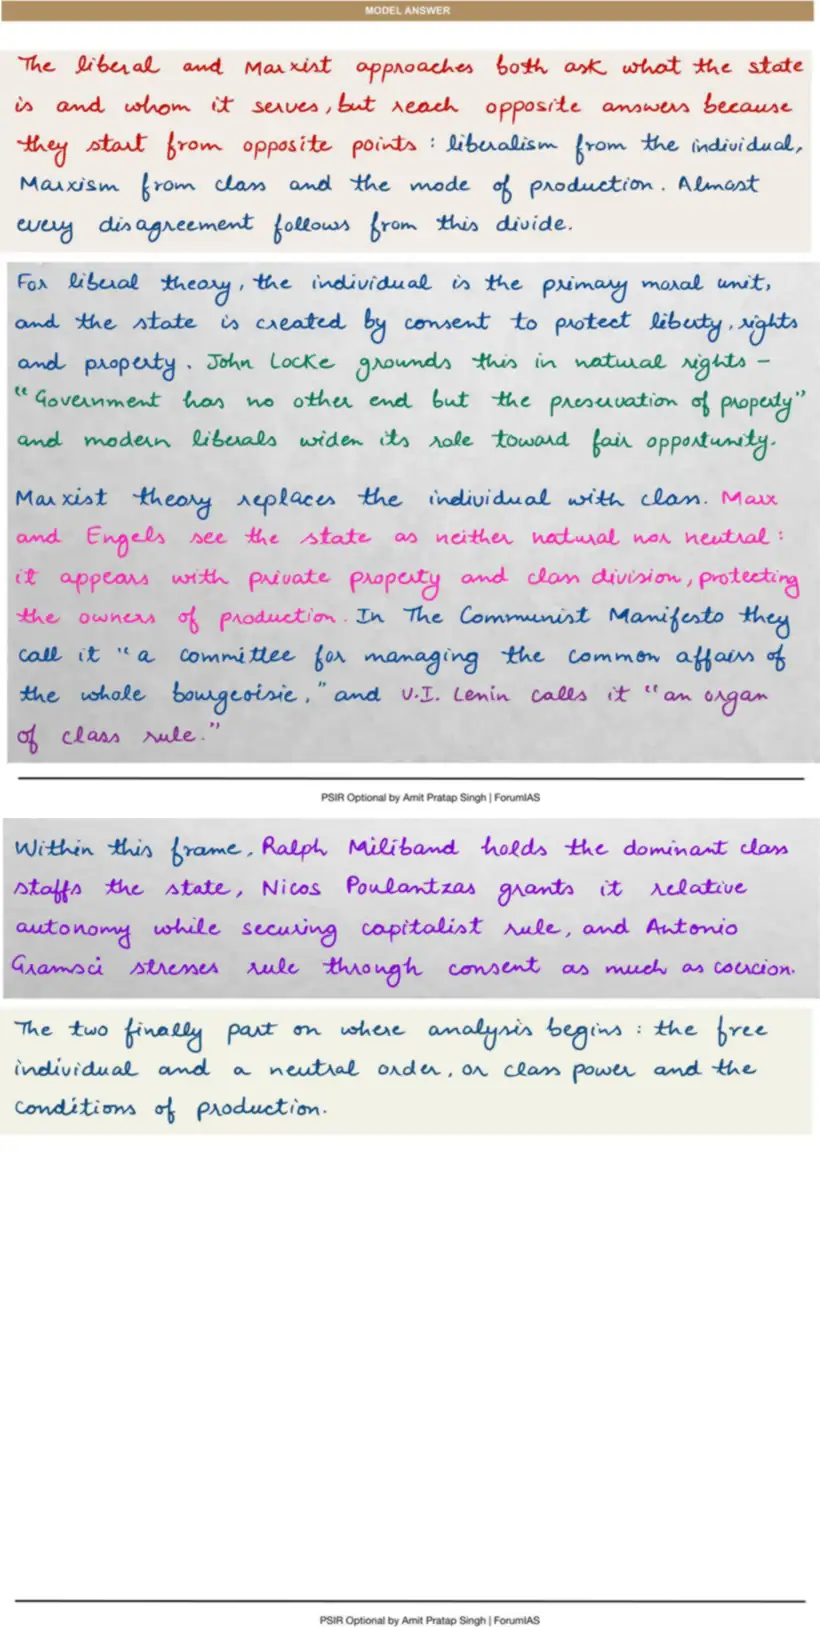 MODEL ANSWER
The liberal and Marxist approaches both ask what the state
is and whom it serves, but reach opposite answers because
they start from opposite points : liberalism from the individual,
Marxism from class and the mode of production. Almost
every disagreement follows from this divide.
For liberal theory, the individual is the primary moral unit,
and the state is created by consent to protect liberty, rights
and property. John Locke grounds this in natural rights –
"Government has no other end but the preservation of property"
and modern liberals widen its role toward fair opportunity.
Marxist theory replaces the individual with class. Marx
and Engels see the state as neither natural nor neutral :
it appears with private property and class division, protecting
the owners of production. In The Communist Manifesto they
call it "a committee for managing the common affairs of
the whole bourgeoisie," and V.I. Lenin calls it "an organ
of class rule."
PSIR Optional by Amit Pratap Singh | ForumIAS
Within this frame, Ralph Miliband holds the dominant class
staffs the state, Nicos Poulantzas grants it relative
autonomy while securing capitalist rule, and Antonio
Gramsci stresses rule through consent as much as coercion.
The two finally part on where analysis begins : the free
individual and a neutral order, or class power and the
conditions of production.
PSIR Optional by Amit Pratap Singh | ForumIAS